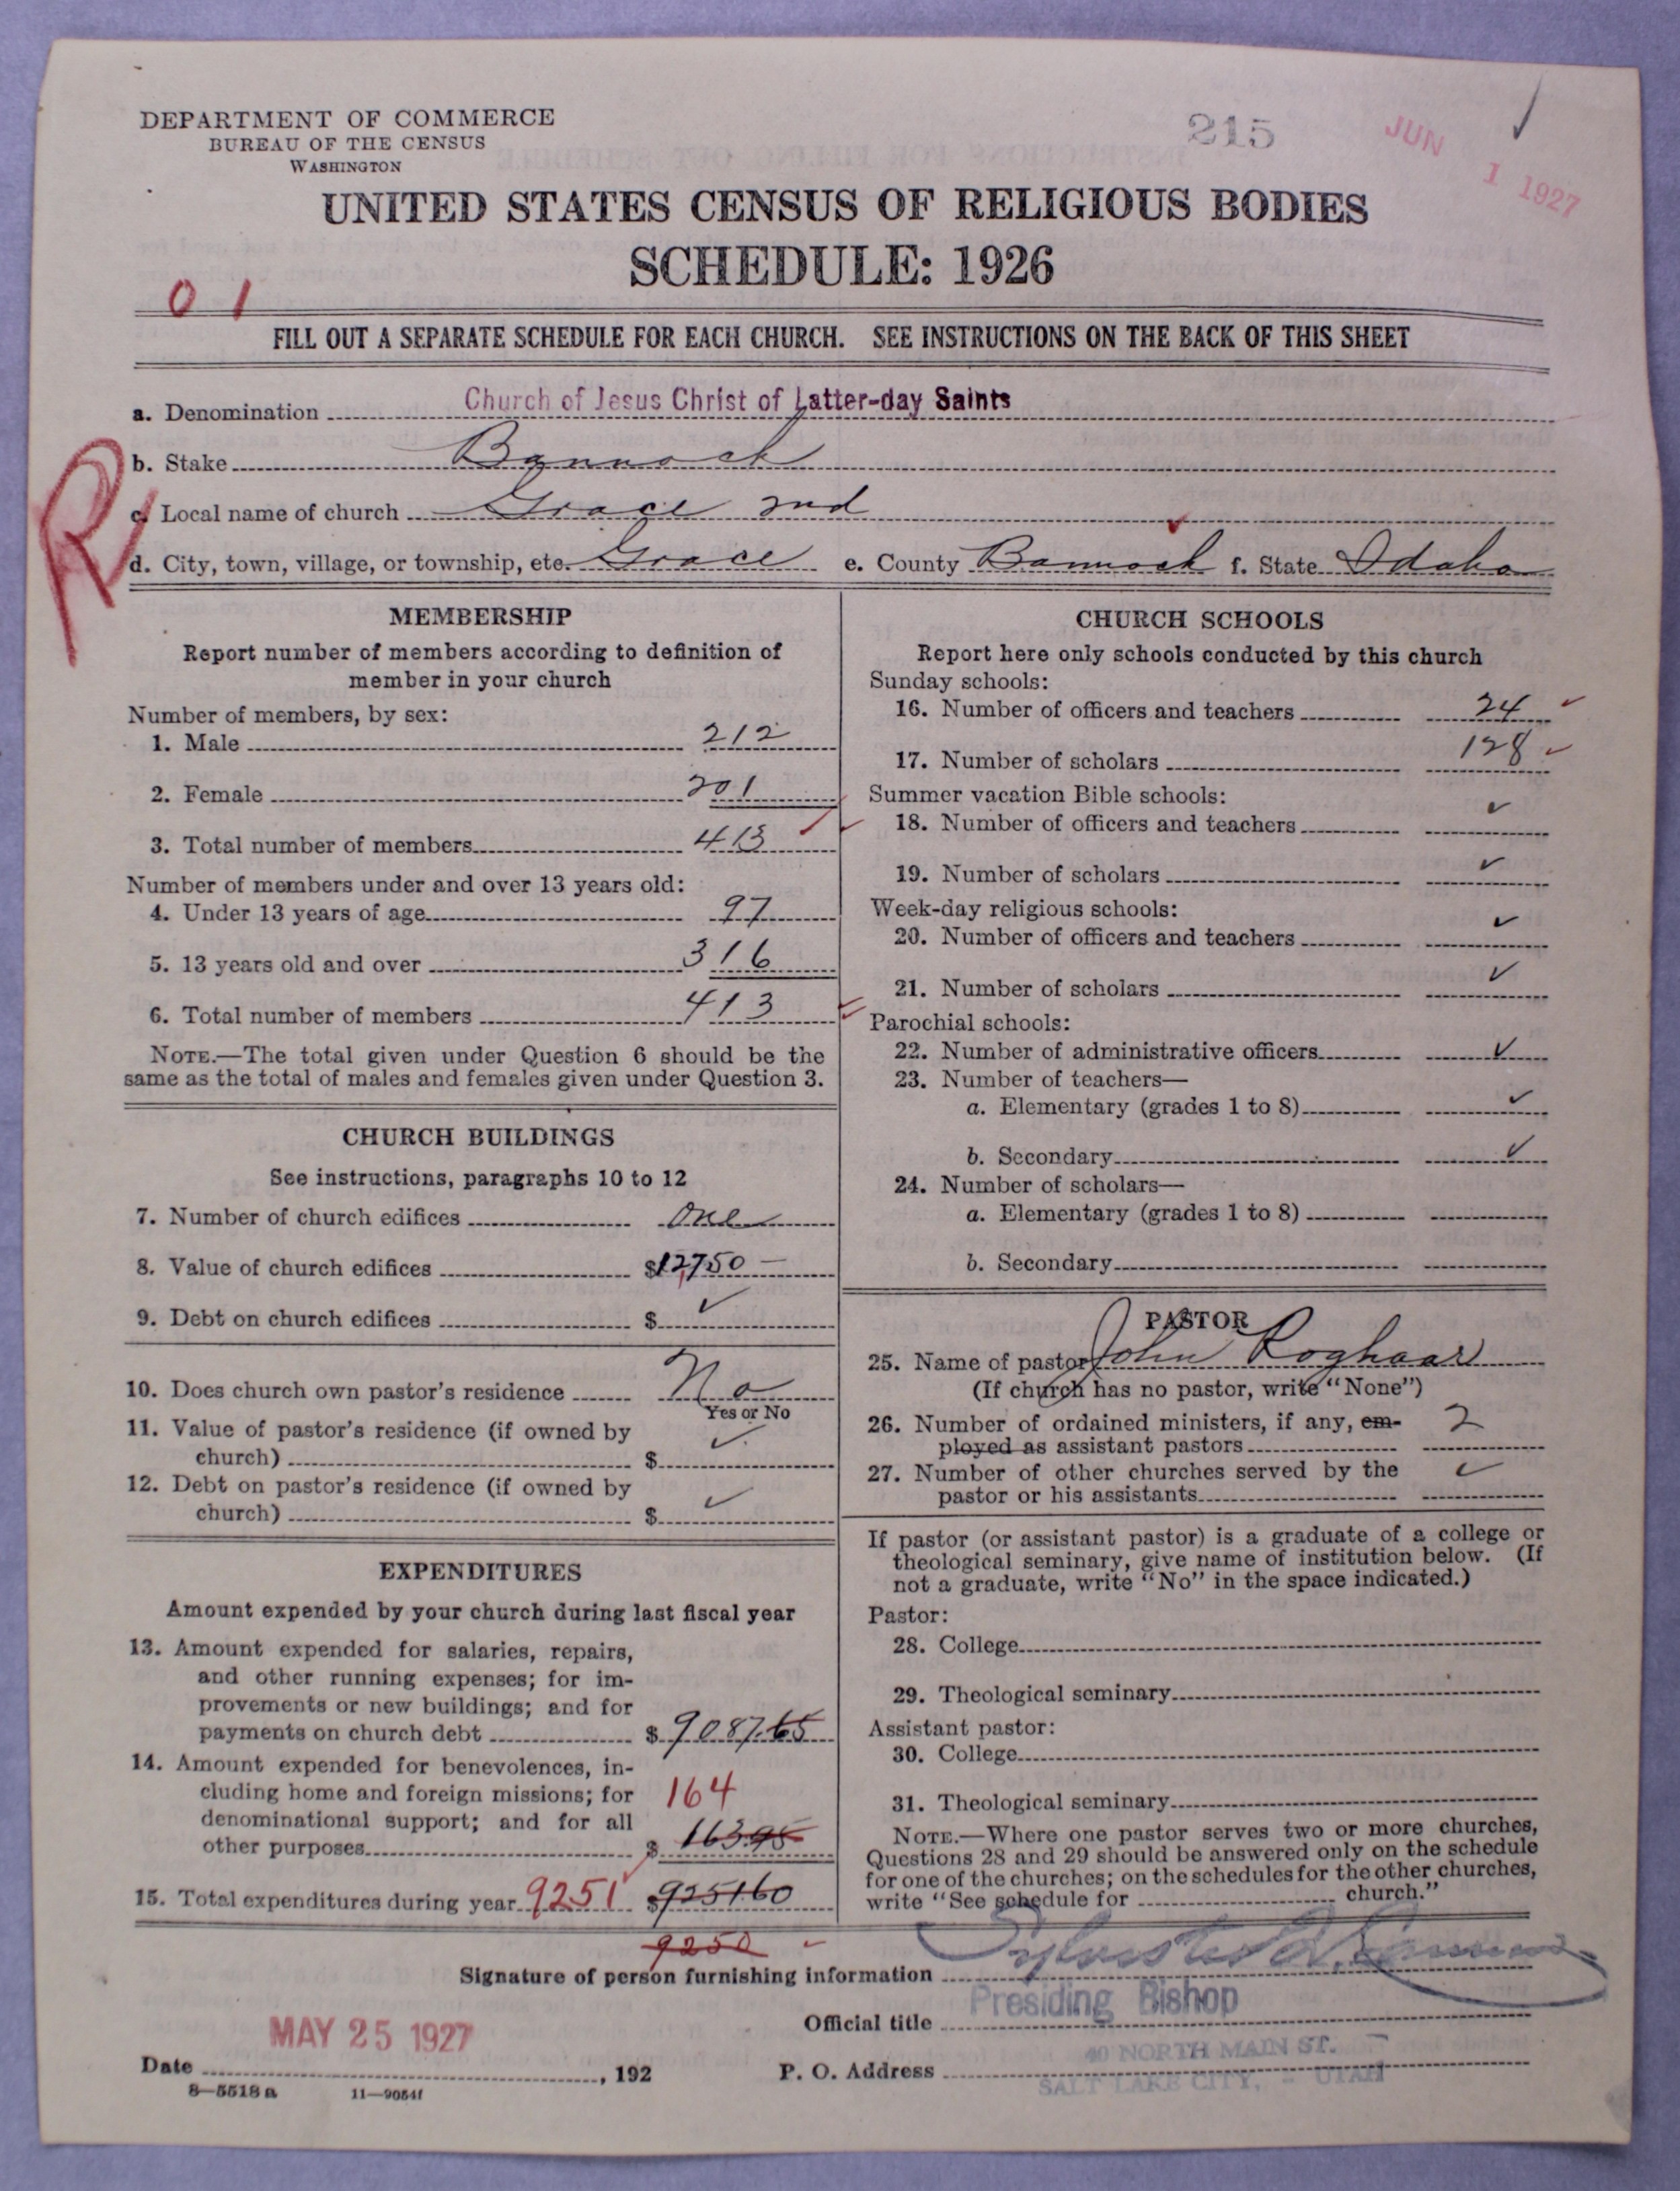 DEPARTMENT OF COMMERCE
BUREAU OF THE CENSUS
WASHINGTON
215
JUN 1 1927
UNITED STATES CENSUS OF RELIGIOUS BODIES
SCHEDULE: 1926
01
FILL OUT A SEPARATE SCHEDULE FOR EACH CHURCH. SEE INSTRUCTIONS ON THE BACK OF THIS SHEET
a. Denomination Church of Jesus Christ of Latter-day Saints
b. Stake Bannock
R
c. Local name of church Grace 2nd
d. City, town, village, or township, etc. Grace e. County Bannock f. State Idaho
MEMBERSHIP
Report number of members according to definition of
member in your church
Number of members, by sex:
1. Male 212
2. Female 201
3. Total number of members 413
Number of members under and over 13 years old:
4. Under 13 years of age 97
5. 13 years old and over 316
6. Total number of members 413
NOTE.—The total given under Question 6 should be the
same as the total of males and females given under Question 3.
CHURCH BUILDINGS
See instructions, paragraphs 10 to 12
7. Number of church edifices One
8. Value of church edifices $12,750 —
9. Debt on church edifices $ ✓
10. Does church own pastor's residence No
Yes or No
11. Value of pastor's residence (if owned by
church) $ ✓
12. Debt on pastor's residence (if owned by
church) $ ✓
EXPENDITURES
Amount expended by your church during last fiscal year
13. Amount expended for salaries, repairs,
and other running expenses; for im-
provements or new buildings; and for
payments on church debt $ 9087.65
14. Amount expended for benevolences, in-
cluding home and foreign missions; for 164
denominational support; and for all
other purposes $ 163.95
15. Total expenditures during year 9251 $9251.60
9250
CHURCH SCHOOLS
Report here only schools conducted by this church
Sunday schools:
16. Number of officers and teachers 24
17. Number of scholars 128
Summer vacation Bible schools:
18. Number of officers and teachers ✓
19. Number of scholars ✓
Week-day religious schools:
20. Number of officers and teachers ✓
21. Number of scholars ✓
Parochial schools:
22. Number of administrative officers ✓
23. Number of teachers—
a. Elementary (grades 1 to 8) ✓
b. Secondary ✓
24. Number of scholars—
a. Elementary (grades 1 to 8)
b. Secondary
PASTOR
25. Name of pastor John Roghaar
(If church has no pastor, write "None")
26. Number of ordained ministers, if any, em- 2
ployed as assistant pastors
27. Number of other churches served by the ✓
pastor or his assistants
If pastor (or assistant pastor) is a graduate of a college or
theological seminary, give name of institution below. (If
not a graduate, write "No" in the space indicated.)
Pastor:
28. College
29. Theological seminary
Assistant pastor:
30. College
31. Theological seminary
NOTE.—Where one pastor serves two or more churches,
Questions 28 and 29 should be answered only on the schedule
for one of the churches; on the schedules for the other churches,
write "See schedule for church."
Signature of person furnishing information Sylvester Q. Cannon
Official title Presiding Bishop
MAY 25 1927
Date , 192
P. O. Address 40 NORTH MAIN ST.
SALT LAKE CITY, - UTAH
8—5518 a 11—9054f